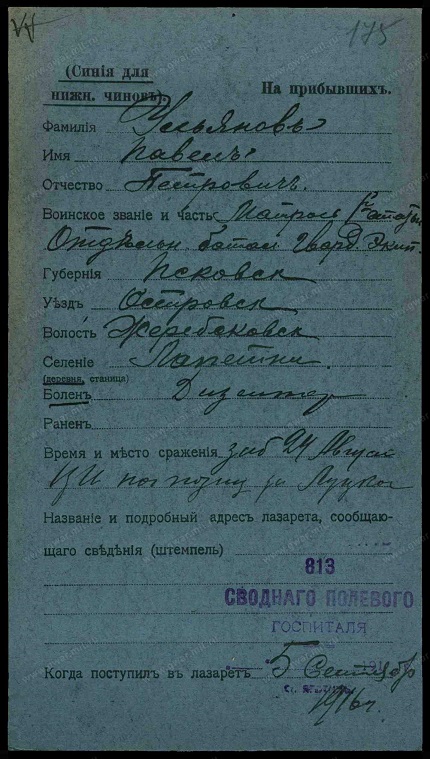 175
(Синія для
нижн. чиновъ).
На прибывшихъ.
Фамилія Ульяновъ
Имя Павелъ
Отчество Петровичъ.
Воинское званіе и часть Матросъ
Отдѣльн. батал Гвард. Экип.
Губернія Псковск
Уѣздъ Островск
Волость Жеребсковск
Селеніе
(деревня, станица)
Боленъ Дизентер
Раненъ
Время и мѣсто сраженія заб 24 Август
Луцком
Названіе и подробный адресъ лазарета, сообщаю-
щаго свѣдѣнія (штемпель)
813
СВОДНАГО ПОЛЕВОГО
ГОСПИТАЛЯ
Когда поступилъ въ лазаретъ 5 Сентябр
1916 г.